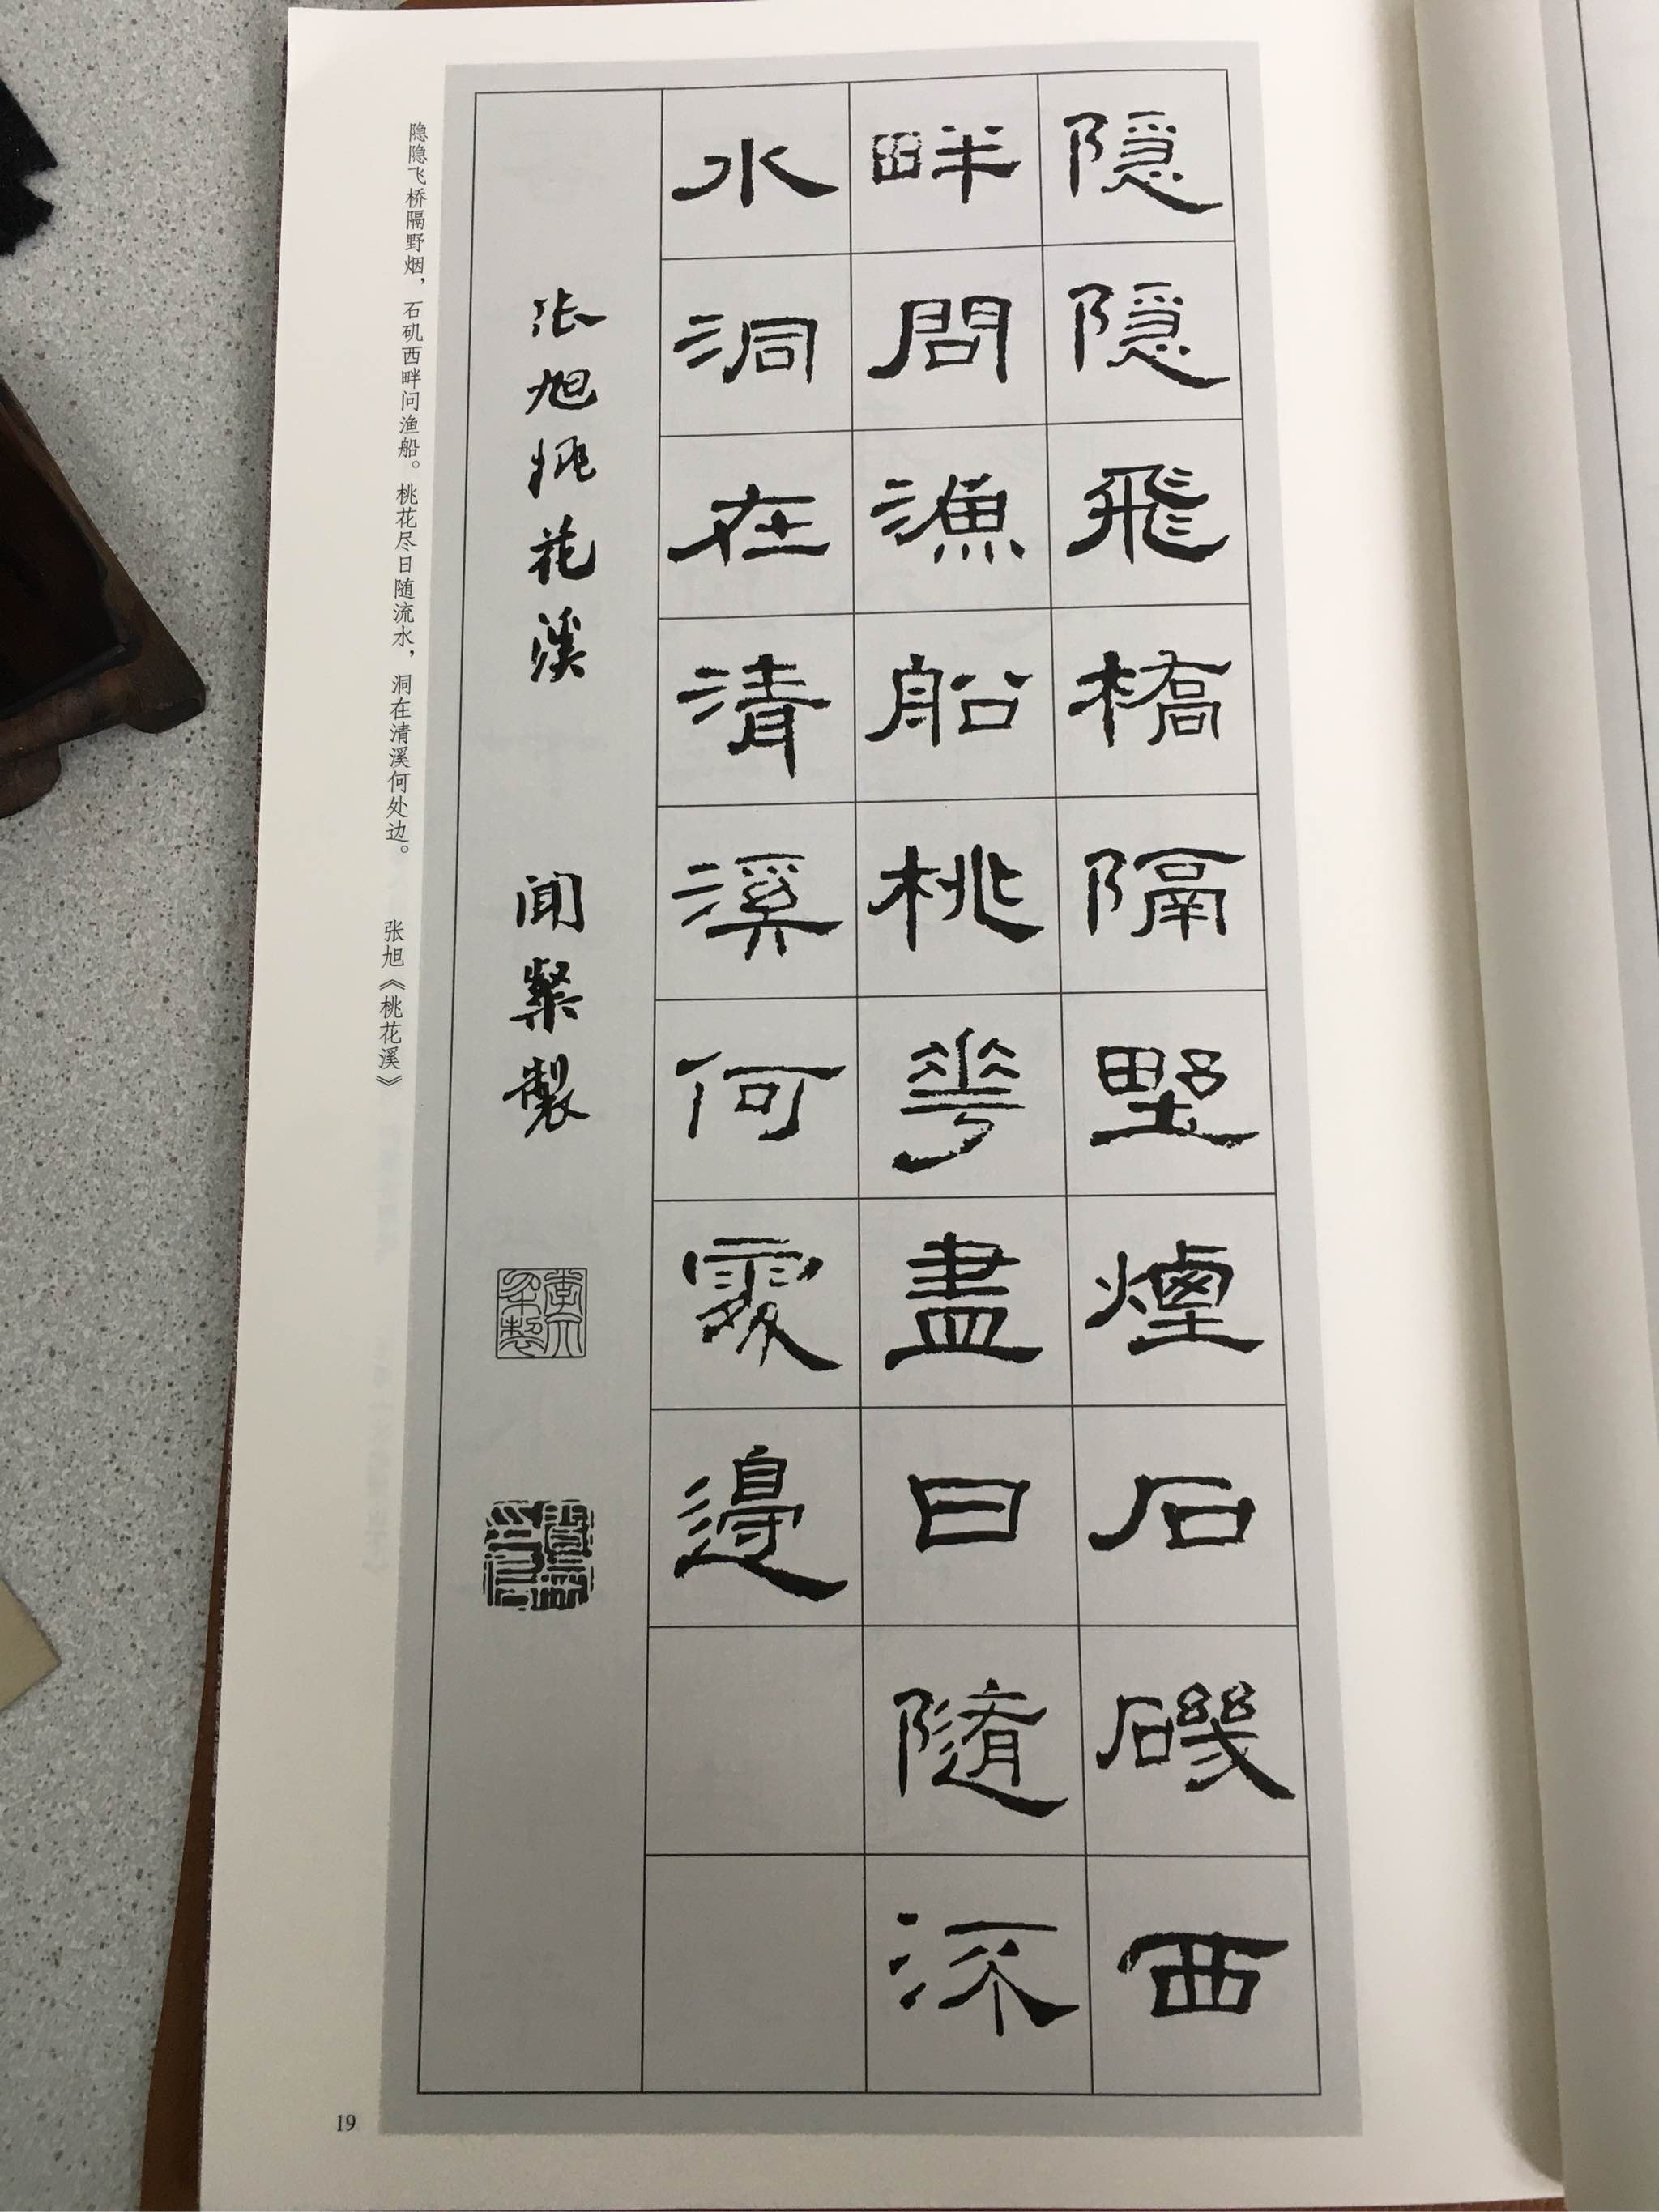 隱隱飛橋隔野煙石磯西
畔問漁船桃花盡日隨流
水洞在清溪何處邊
张旭桃花溪 聞槃製
隐隐飞桥隔野烟，石矶西畔问渔船。桃花尽日随流水，洞在清溪何处边。 张旭《桃花溪》
19